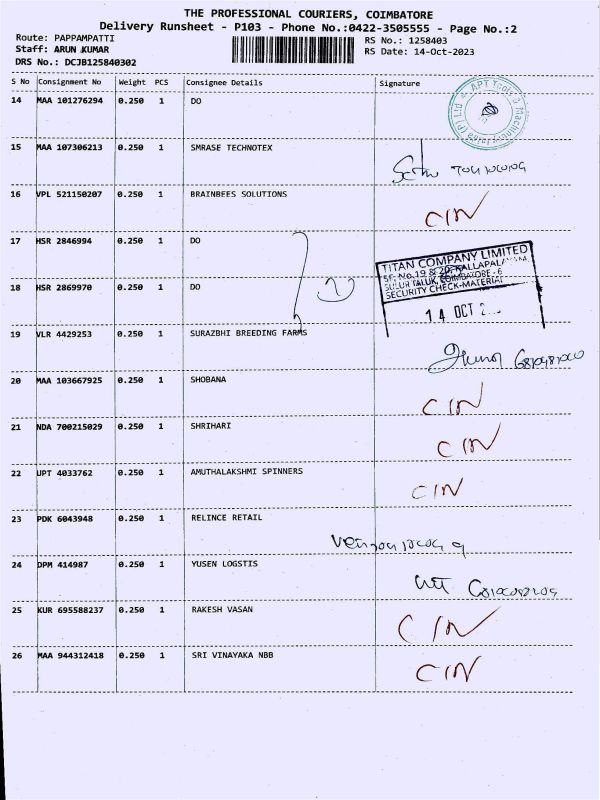 THE PROFESSIONAL COURIERS, COIMBATORE
Delivery Runsheet - P103 - Phone No.:0422-3505555 - Page No.:2
Route: PAPPAMPATTI RS No.: 1258403
Staff: ARUN KUMAR RS Date: 14-Oct-2023
DRS No.: DCJB125840302
S No Consignment No Weight PCS Consignee Details Signature
14 MAA 101276294 0.250 1 DO
15 MAA 107306213 0.250 1 SMRASE TECHNOTEX
16 VPL 521150207 0.250 1 BRAINBEES SOLUTIONS CIN
17 HSR 2846994 0.250 1 DO
TITAN COMPANY LIMITED
SECURITY CHECK-MATERIAL
18 HSR 2869970 0.250 1 DO 14 OCT
19 VLR 4429253 0.250 1 SURAZBHI BREEDING FARMS
20 MAA 103667925 0.250 1 SHOBANA CIN
21 NDA 700215029 0.250 1 SHRIHARI CIN
22 UPT 4033762 0.250 1 AMUTHALAKSHMI SPINNERS CIN
23 PDK 6043948 0.250 1 RELINCE RETAIL
24 DPM 414987 0.250 1 YUSEN LOGSTIS
25 KUR 695588237 0.250 1 RAKESH VASAN CIN
26 MAA 944312418 0.250 1 SRI VINAYAKA NBB CIN